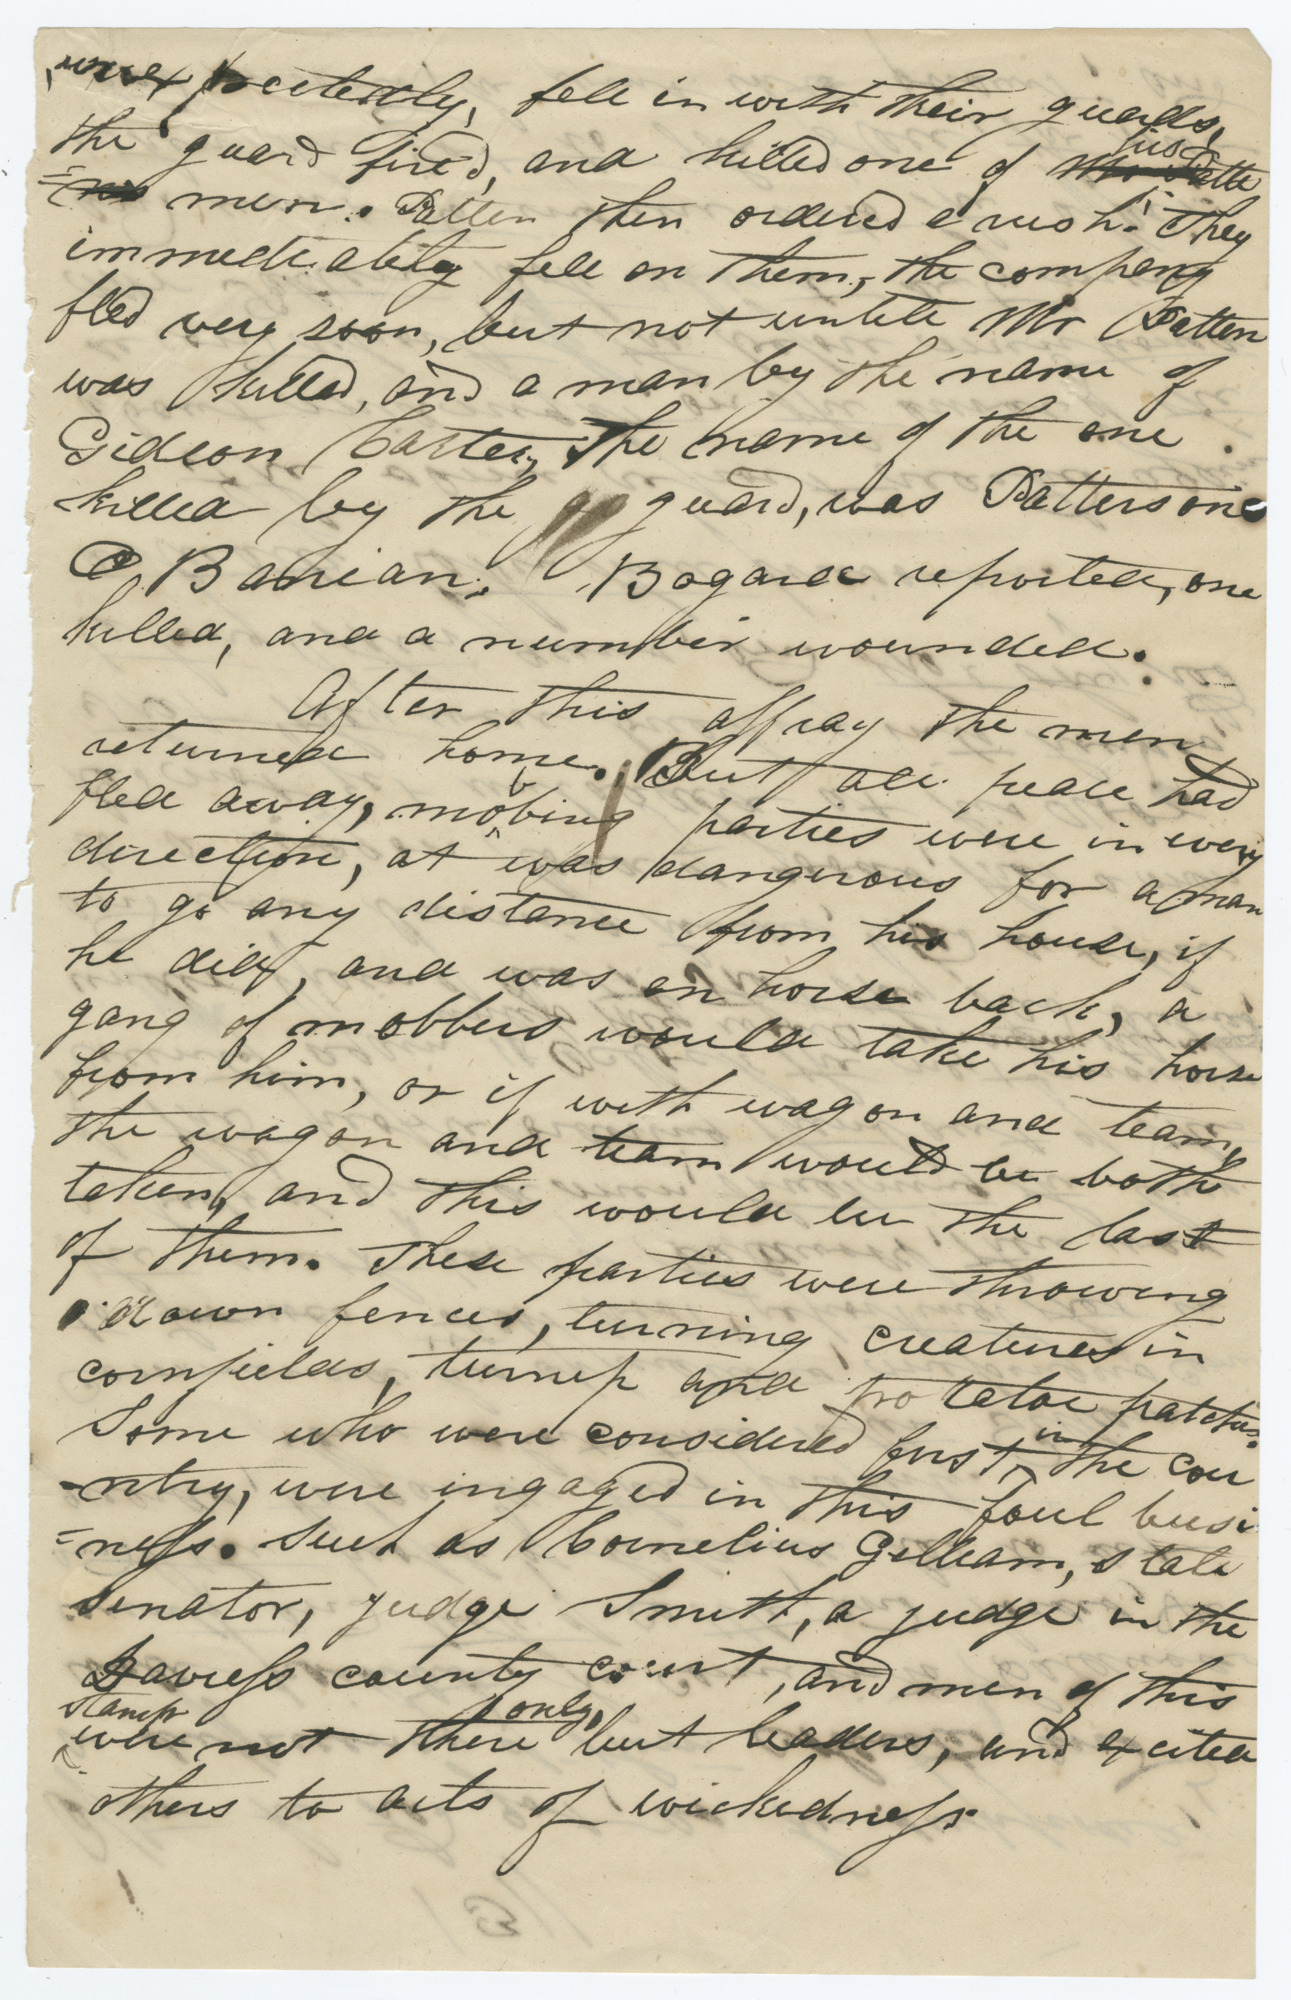 unexpectedly, fell in with their guards,
the guard fired, and killed one of his Mr Patte
=ns men. Patten then ordered a rush. They
immediately fell on them, the company
fled very soon, but not untill Mr Patten
was killed, and a man by the name of
Gideon Carter, the name of the one
killed by the g guard, was Patterson
O Banian. Bogard reported, one
killed, and a number wounded.
After this affray the men
returned home. But all peace had
fled away, mobing parties were in every
direction, it was dangerous for a man
to go any distance from his house, if
he did, and was on horse back, a
gang of mobbers would take his horse
from him, or if with wagon and team,
the wagon and team would be both
taken, and this would be the last
of them. These parties were throwing
down fences, turning creatures in
cornfields, turnip and potatoe patches.
Some who were considered first in the cou
-ntry, were ingaged in this foul busi
=ness. Such as Cornelius Gilleam, state
senator, judge Smith, a judge in the
Daviess county court, and men of this
stamp were not there only, but leaders, and excited
others to acts of wickedness